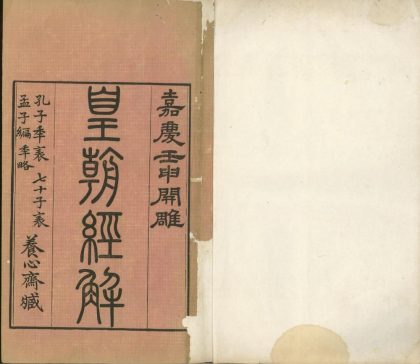 嘉慶壬申開雕
皇朝經解
孔子年表 七十子表
孟子編年略
養心齋臧